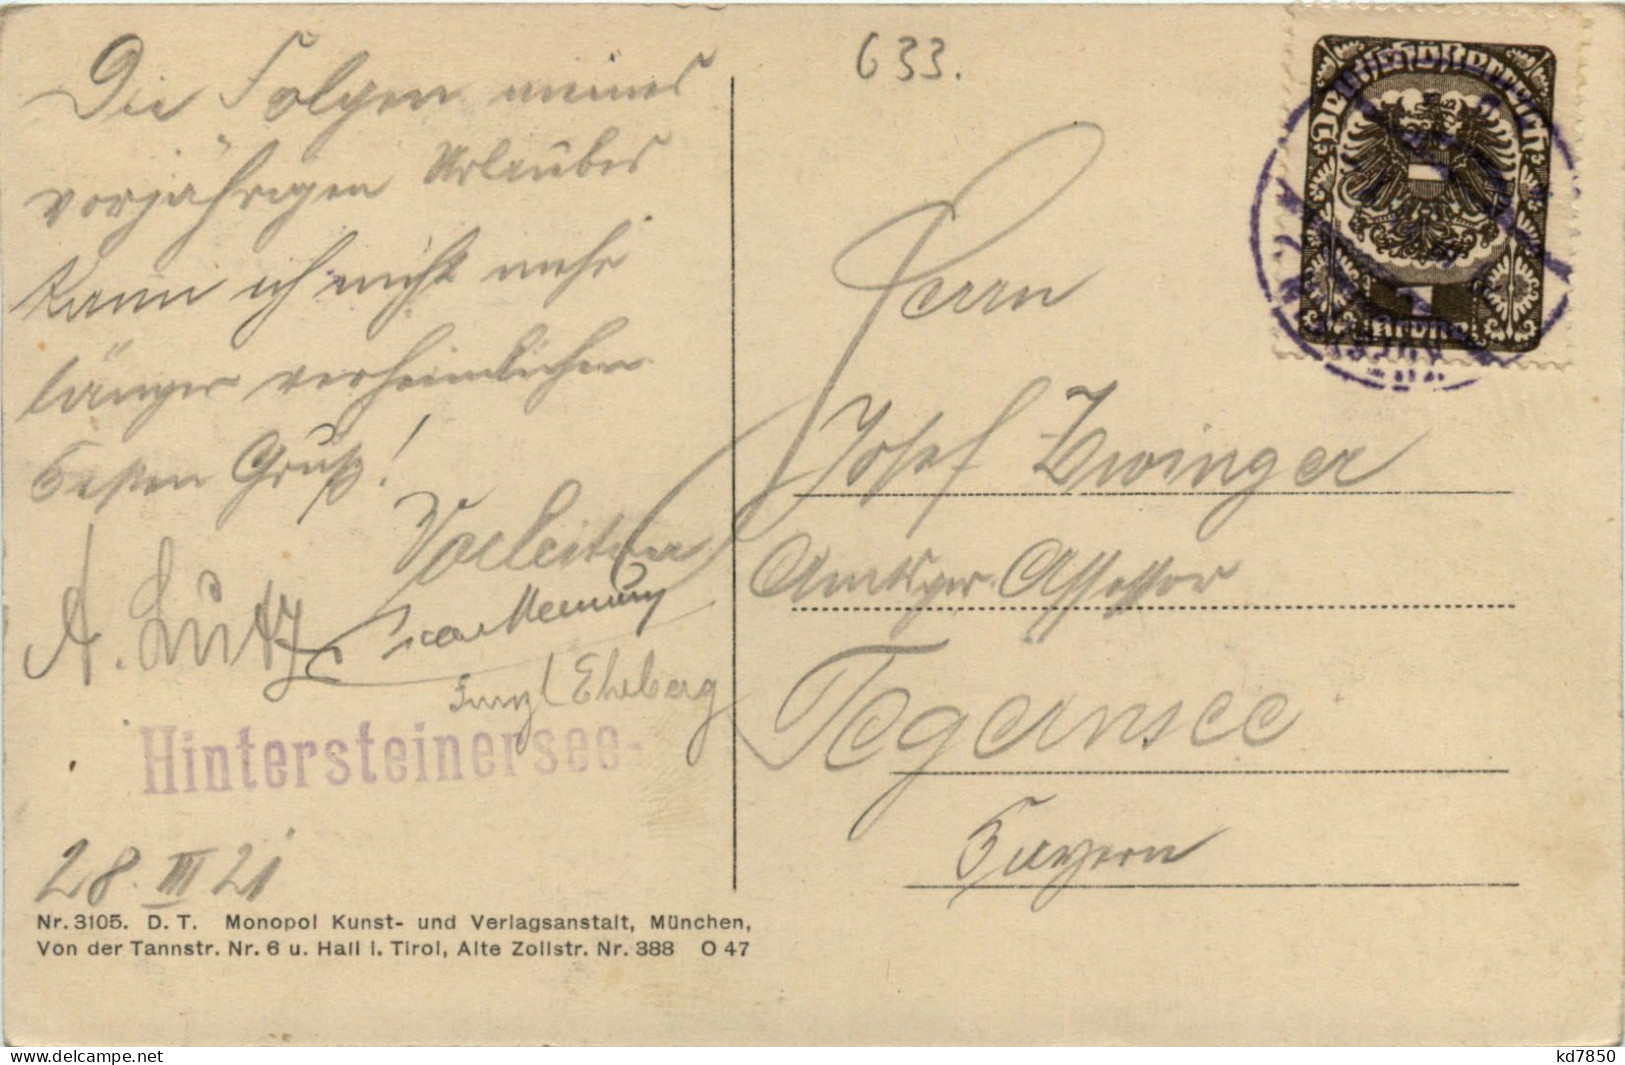 Die Folgen meines
vorjährigen Urlaubes
kann ich nicht mehr
länger verheimlichen
Besten Gruß!
A. Lutz
Ehrberg
Hintersteinersee-
28. III 21
Nr. 3105. D. T. Monopol Kunst- und Verlagsanstalt, München,
Von der Tannstr. Nr. 6 u. Hall i. Tirol, Alte Zollstr. Nr. 388 O 47
633.
Deutschösterreich
1
Krone
Herrn
Josef Zwinger
Amtsger. Assessor
Tegernsee
Bayern
kd7850